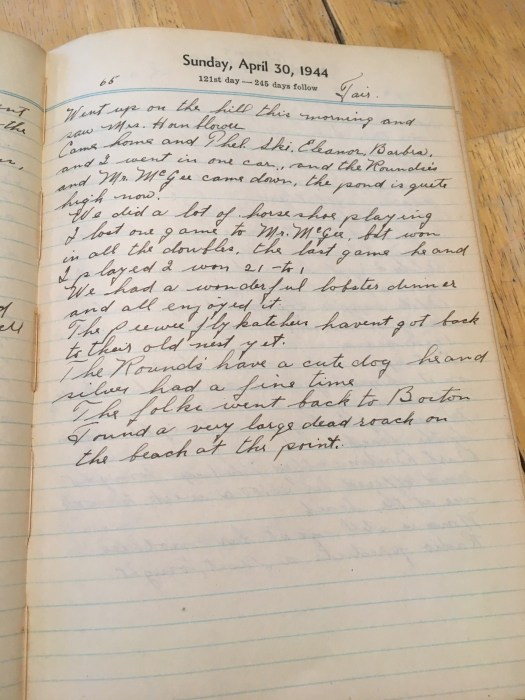 Sunday, April 30, 1944
121st day—245 days follow
65
Fair.
Went up on the hill this morning and
saw Mrs. Hornblower
Came home and Phel Ski, Eleanor, Barbra,
and I went in one car, and the Roundies
and Mr. McGee came down, the pond is quite
high now.
We did a lot of horse shoe playing
I lost one game to Mr. McGee, but won
in all the doubles, the last game he and
I played I won 21-to 1
We had a wonderful lobster dinner
and all enjoyed it.
The Peewee flykatchers havent got back
to their old nest yet.
The Rounds have a cute dog he and
silver had a fine time
The folks went back to Boston
Found a very large dead roach on
the beach at the point.
the